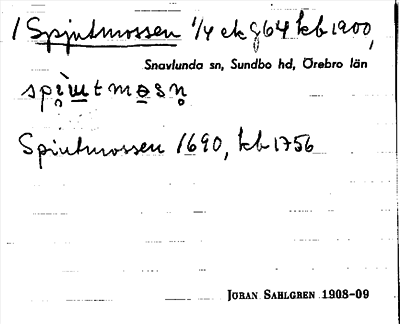 / Spjutmossen 1/4 ek g 64 kb 1900,
Snavlunda sn, Sundbo hd, Örebro län
Spiutmossen 1690, kb 1756
JÖRAN SAHLGREN 1908-09